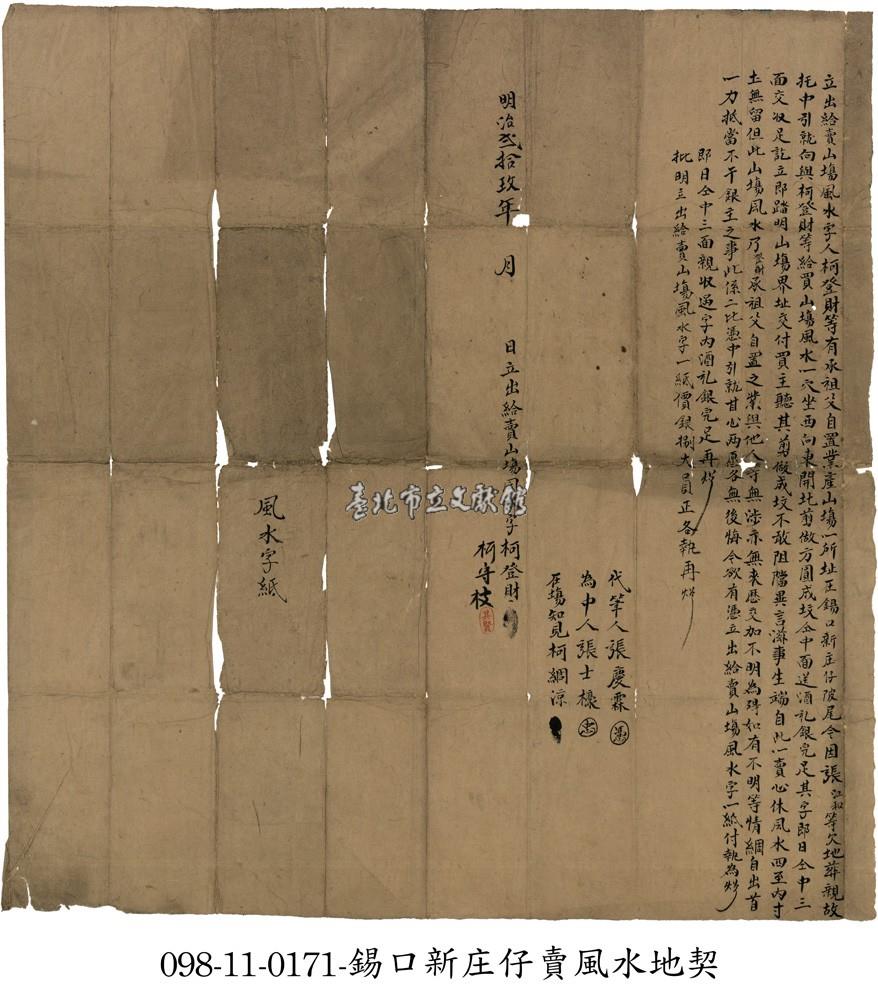 立出給賣山塲風水字人柯登財等有承祖父自置業產山塲一所址在錫口新庄仔陂尾今因張江和等欠地葬親故
托中引就向與柯登財等給買山塲風水一穴坐西向東開北剪做方圓成坟仝中面送酒礼銀完足其字即日仝中三
面交收足訖立即踏明山塲界址交付買主聽其剪做成坟不敢阻擋異言滋事生端自此一賣心休風水四至內寸
土無留但此山塲風水乃登財承祖父自置之業與他人等無涉亦無來歷交加不明為碍如有不明等情綢自出首
一力抵當不干銀主之事此係二比憑中引就甘心两愿各無後悔今欲有憑立出給賣山塲風水字一紙付執為炤
即日仝中三面親收過字內酒礼銀完足再炤
批明立出給賣山塲風水字一紙價銀捌大員正各執再炤
代筆人張慶霖
為中人張士樑
在塲知見柯綢涼
明治弍拾玖年 月 日立出給賣山塲風水字柯登財
柯守枝
風水字紙
臺北市立文獻館
098-11-0171-錫口新庄仔賣風水地契